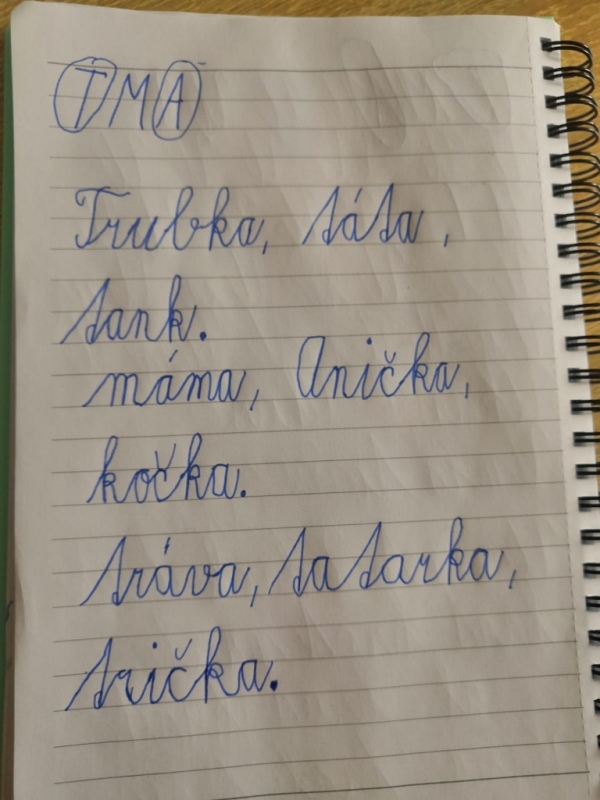 TMA
Trubka, táta,
tank.
máma, Anička,
kočka.
tráva, tatarka,
trička.